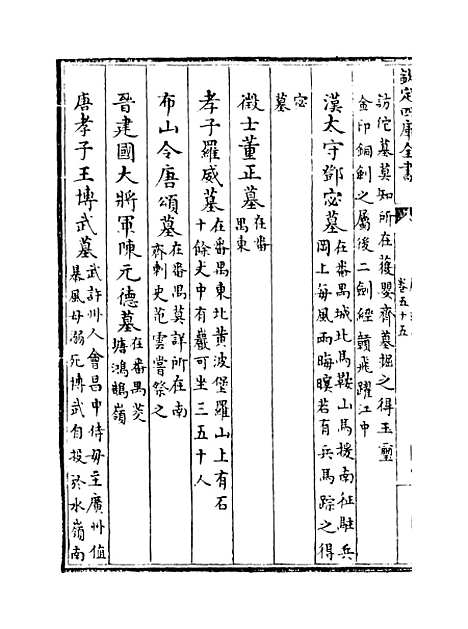 欽定四庫全書
卷五十五
訪佗墓莫知所在獲嬰齊墓掘之得玉璽
金印銅劍之屬後二劍經贛飛躍江中
漢太守鄧宓墓在番禺城北馬鞍山馬援南征駐兵
岡上每風雨晦暝若有兵馬踪之得
宓
墓
徵士董正墓在番
禺東
孝子羅威墓在番禺東北黄波堡羅山上有石
十餘丈中有巖可坐三五十人
布山令唐頌墓在番禺莫詳所在南
齊刺史范雲嘗祭之
晉建國大將軍陳元德墓在番禺茭
塘鴻鵠嶺
唐孝子王博武墓武許州人會昌中侍母至廣州值
暴風母溺死博武自投於水嶺南